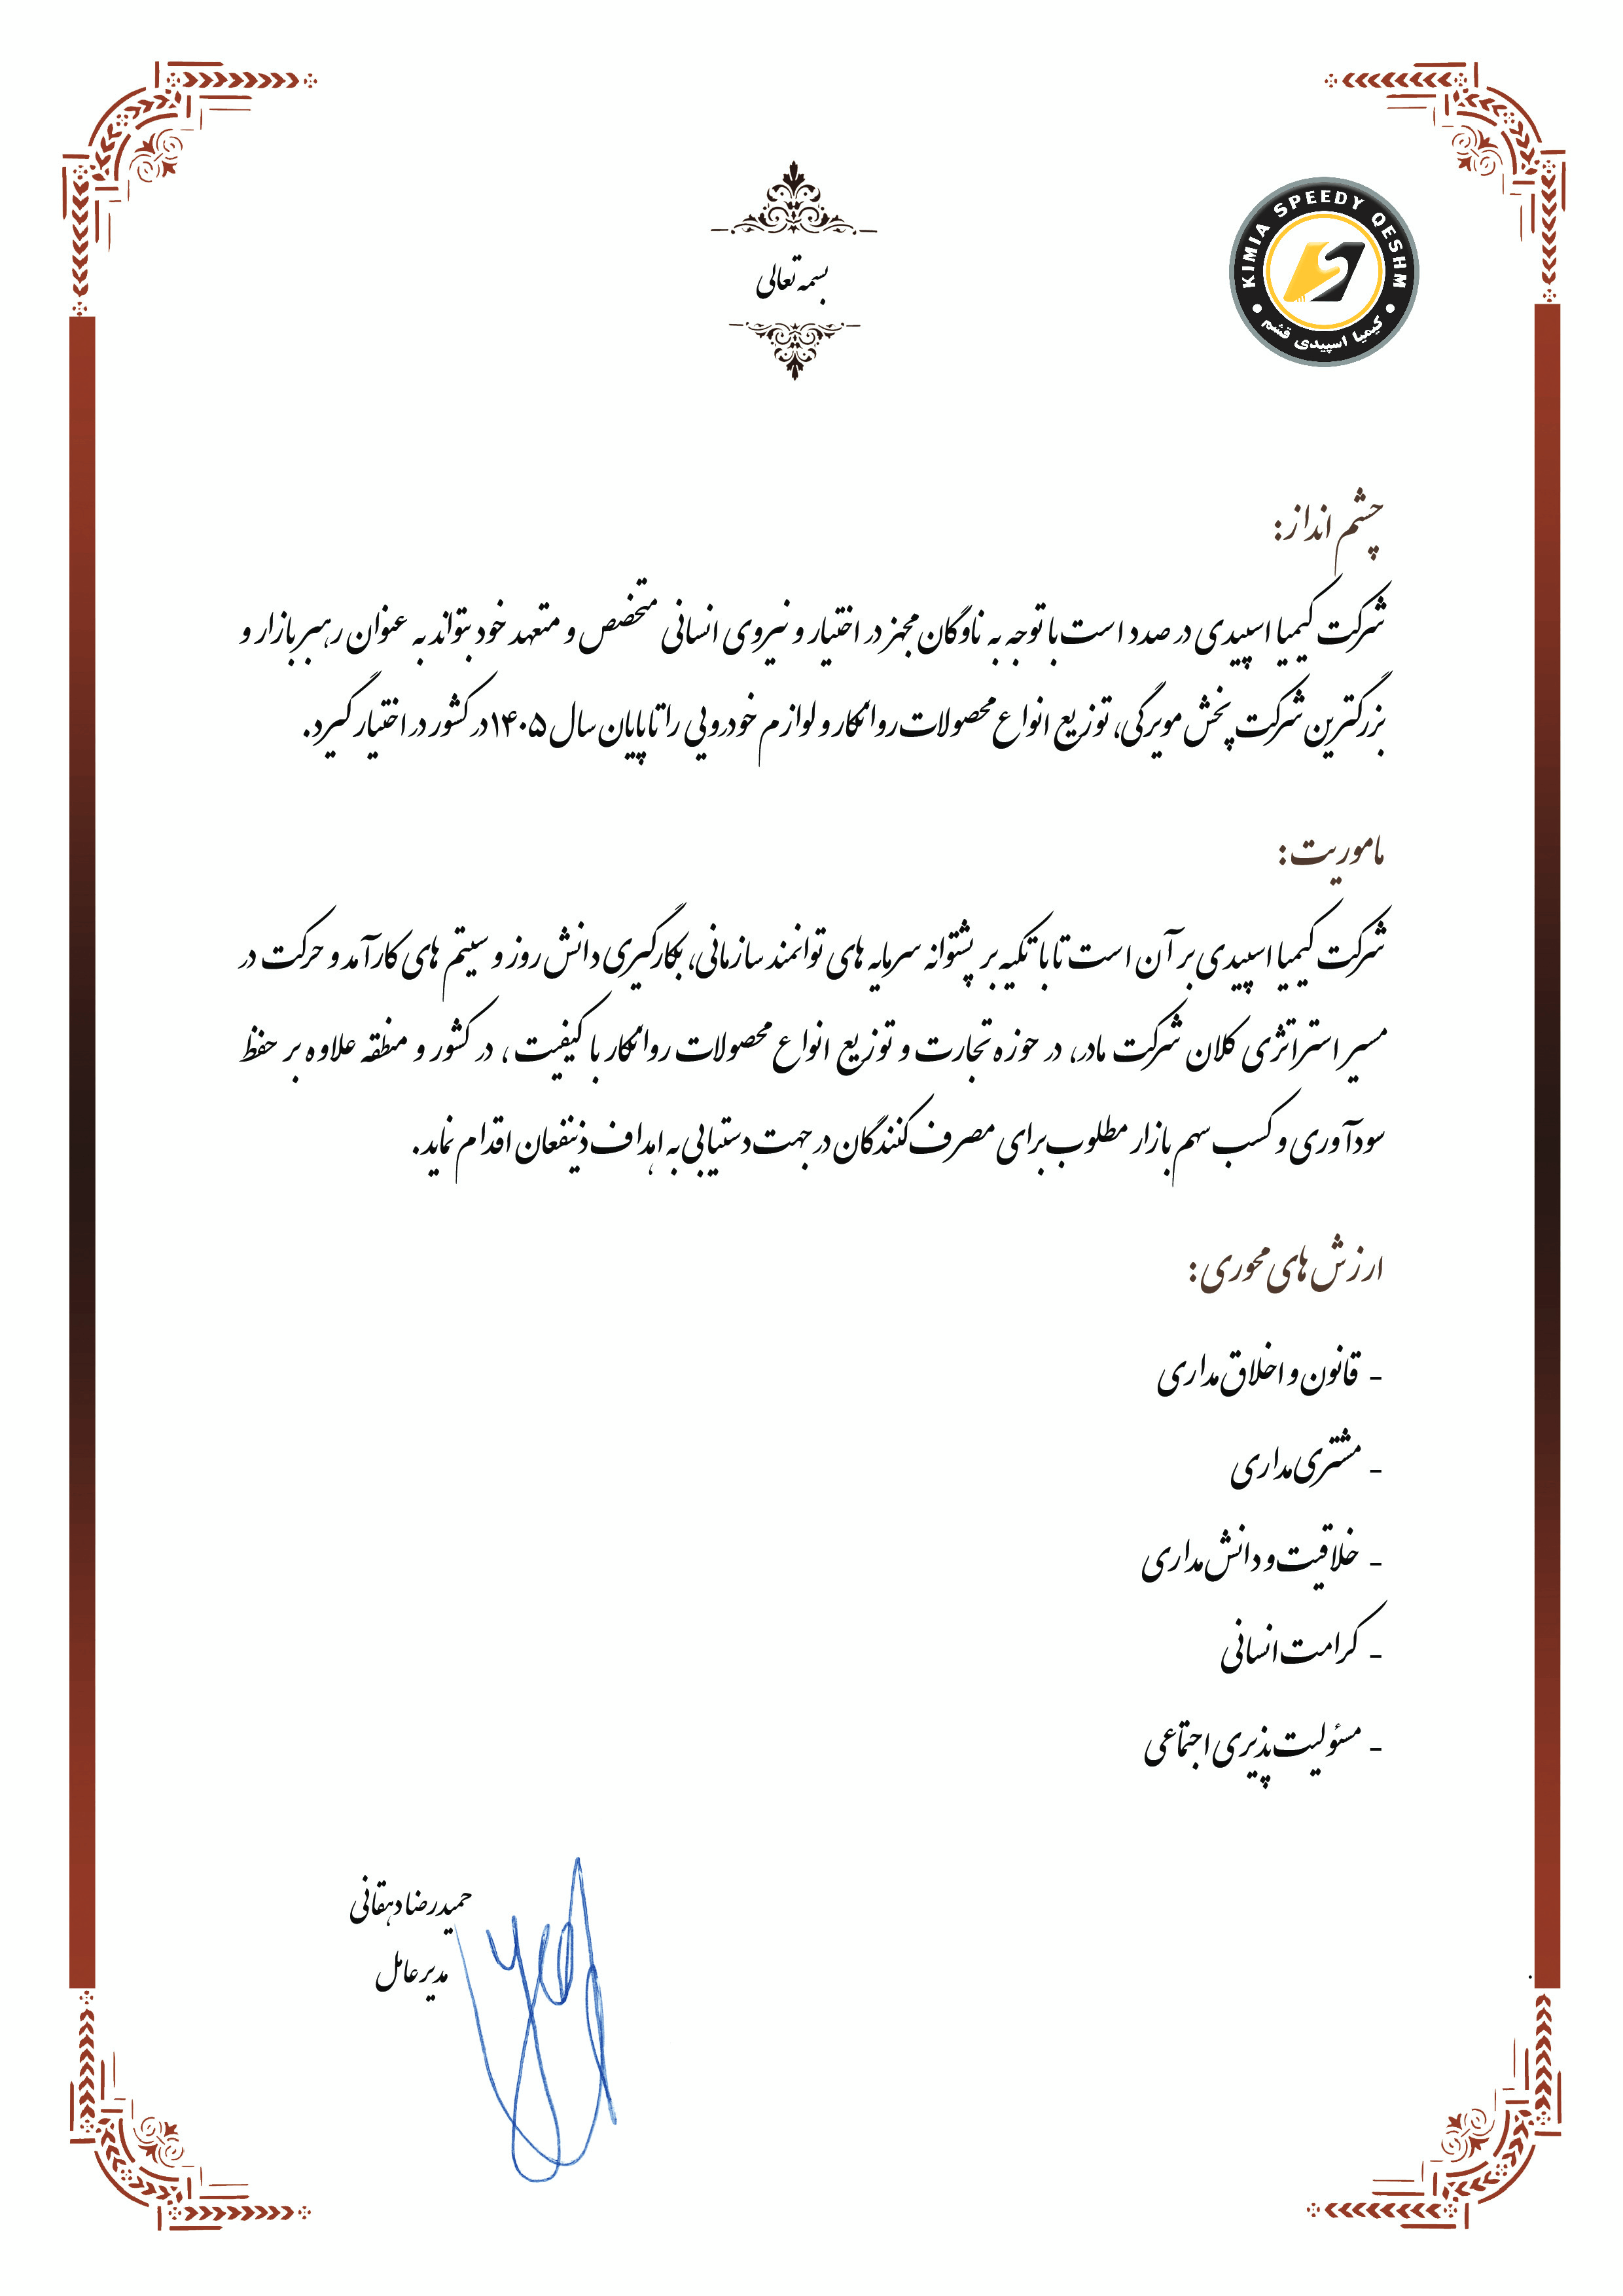 KIMIA SPEEDY QESHM
کیمیا اسپیدی قشم
بسمه تعالی
چشم انداز:
شرکت کیمیا اسپیدی در صدد است با توجه به ناوگان مجهز در اختیار و نیروی انسانی متخصص و متعهد خود بتواند به عنوان رهبر بازار و
بزرگترین شرکت پخش مویرگی، توزیع انواع محصولات روانکار و لوازم خودرویی را تا پایان سال ۱۴۰۵ در کشور در اختیار گیرد.
ماموریت:
شرکت کیمیا اسپیدی بر آن است تا با تکیه بر پشتوانه سرمایه های توانمند سازمانی، بکارگیری دانش روز و سیتم های کارآمد و حرکت در
مسیر استراتژی کلان شرکت مادر، در حوزه تجارت و توزیع انواع محصولات روانکار با کیفیت، در کشور و منطقه علاوه بر حفظ
سودآوری و کسب سهم بازار مطلوب برای مصرف کنندگان در جهت دستیابی به اهداف ذینفعان اقدام نماید.
ارزش های محوری:
- قانون و اخلاق مداری
- مشتری مداری
- خلاقیت و دانش مداری
- کرامت انسانی
- مسئولیت پذیری اجتماعی
حمیدرضا دهقانی
مدیر عامل